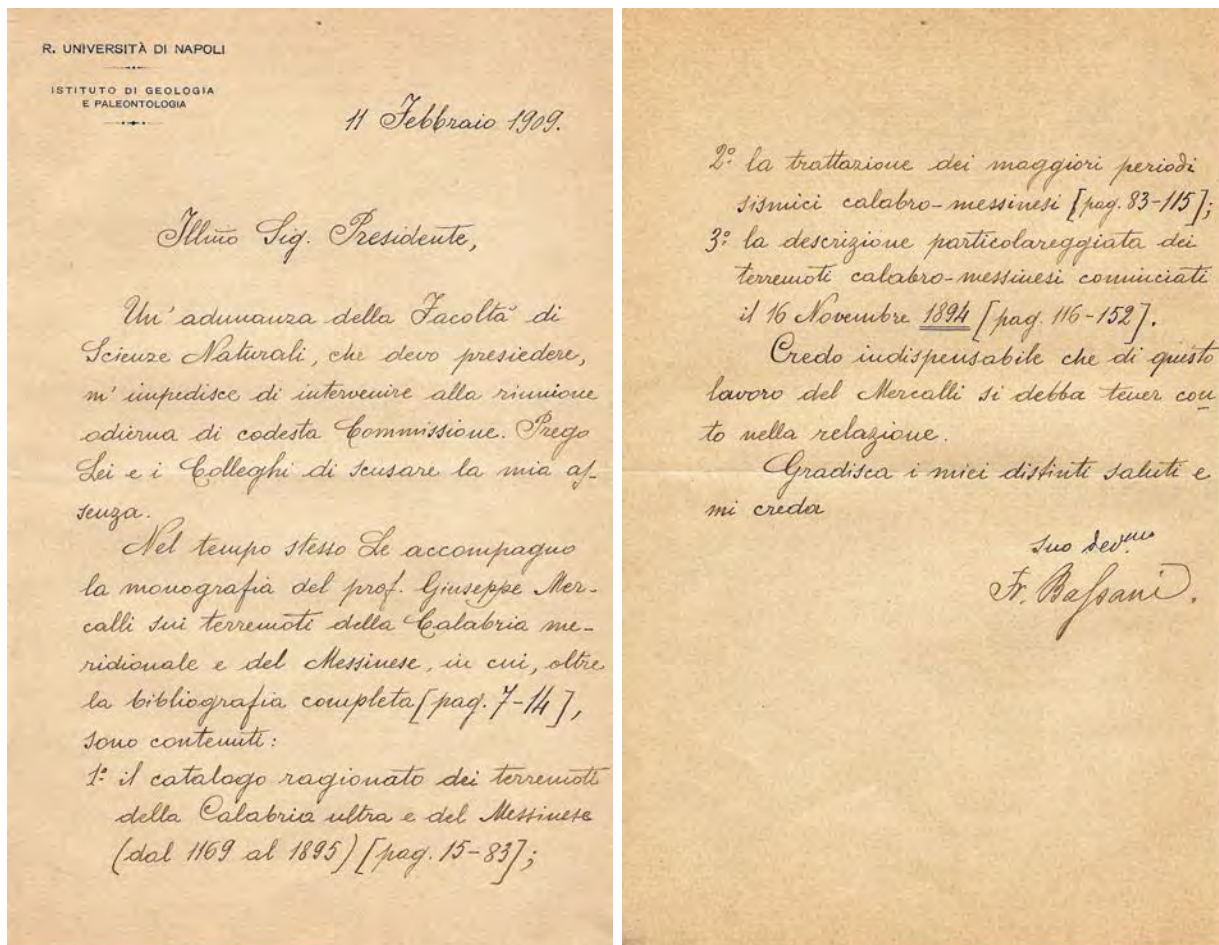 R. UNIVERSITÀ DI NAPOLI
ISTITUTO DI GEOLOGIA
E PALEONTOLOGIA
11 Febbraio 1909.
Illmo Sig. Presidente,
Un' adunanza della Facoltà di
Scienze Naturali, che devo presiedere,
m' impedisce di intervenire alla riunione
odierna di codesta Commissione. Prego
Lei e i Colleghi di scusare la mia as-
senza.
Nel tempo stesso Le accompagno
la monografia del prof. Giuseppe Mer-
calli sui terremoti della Calabria me-
ridionale e del Messinese, in cui, oltre
la bibliografia completa [pag. 7-14],
sono contenuti:
1º il catalogo ragionato dei terremoti
della Calabria ultra e del Messinese
(dal 1169 al 1895) [pag. 15-83];
2º la trattazione dei maggiori periodi
sismici calabro-messinesi [pag. 83-115];
3º la descrizione particolareggiata dei
terremoti calabro-messinesi cominciati
il 16 Novembre 1894 [pag. 116-152].
Credo indispensabile che di questo
lavoro del Mercalli si debba tener con
to nella relazione.
Gradisca i miei distinti saluti e
mi creda
suo dev.mo
Fr. Bassani.